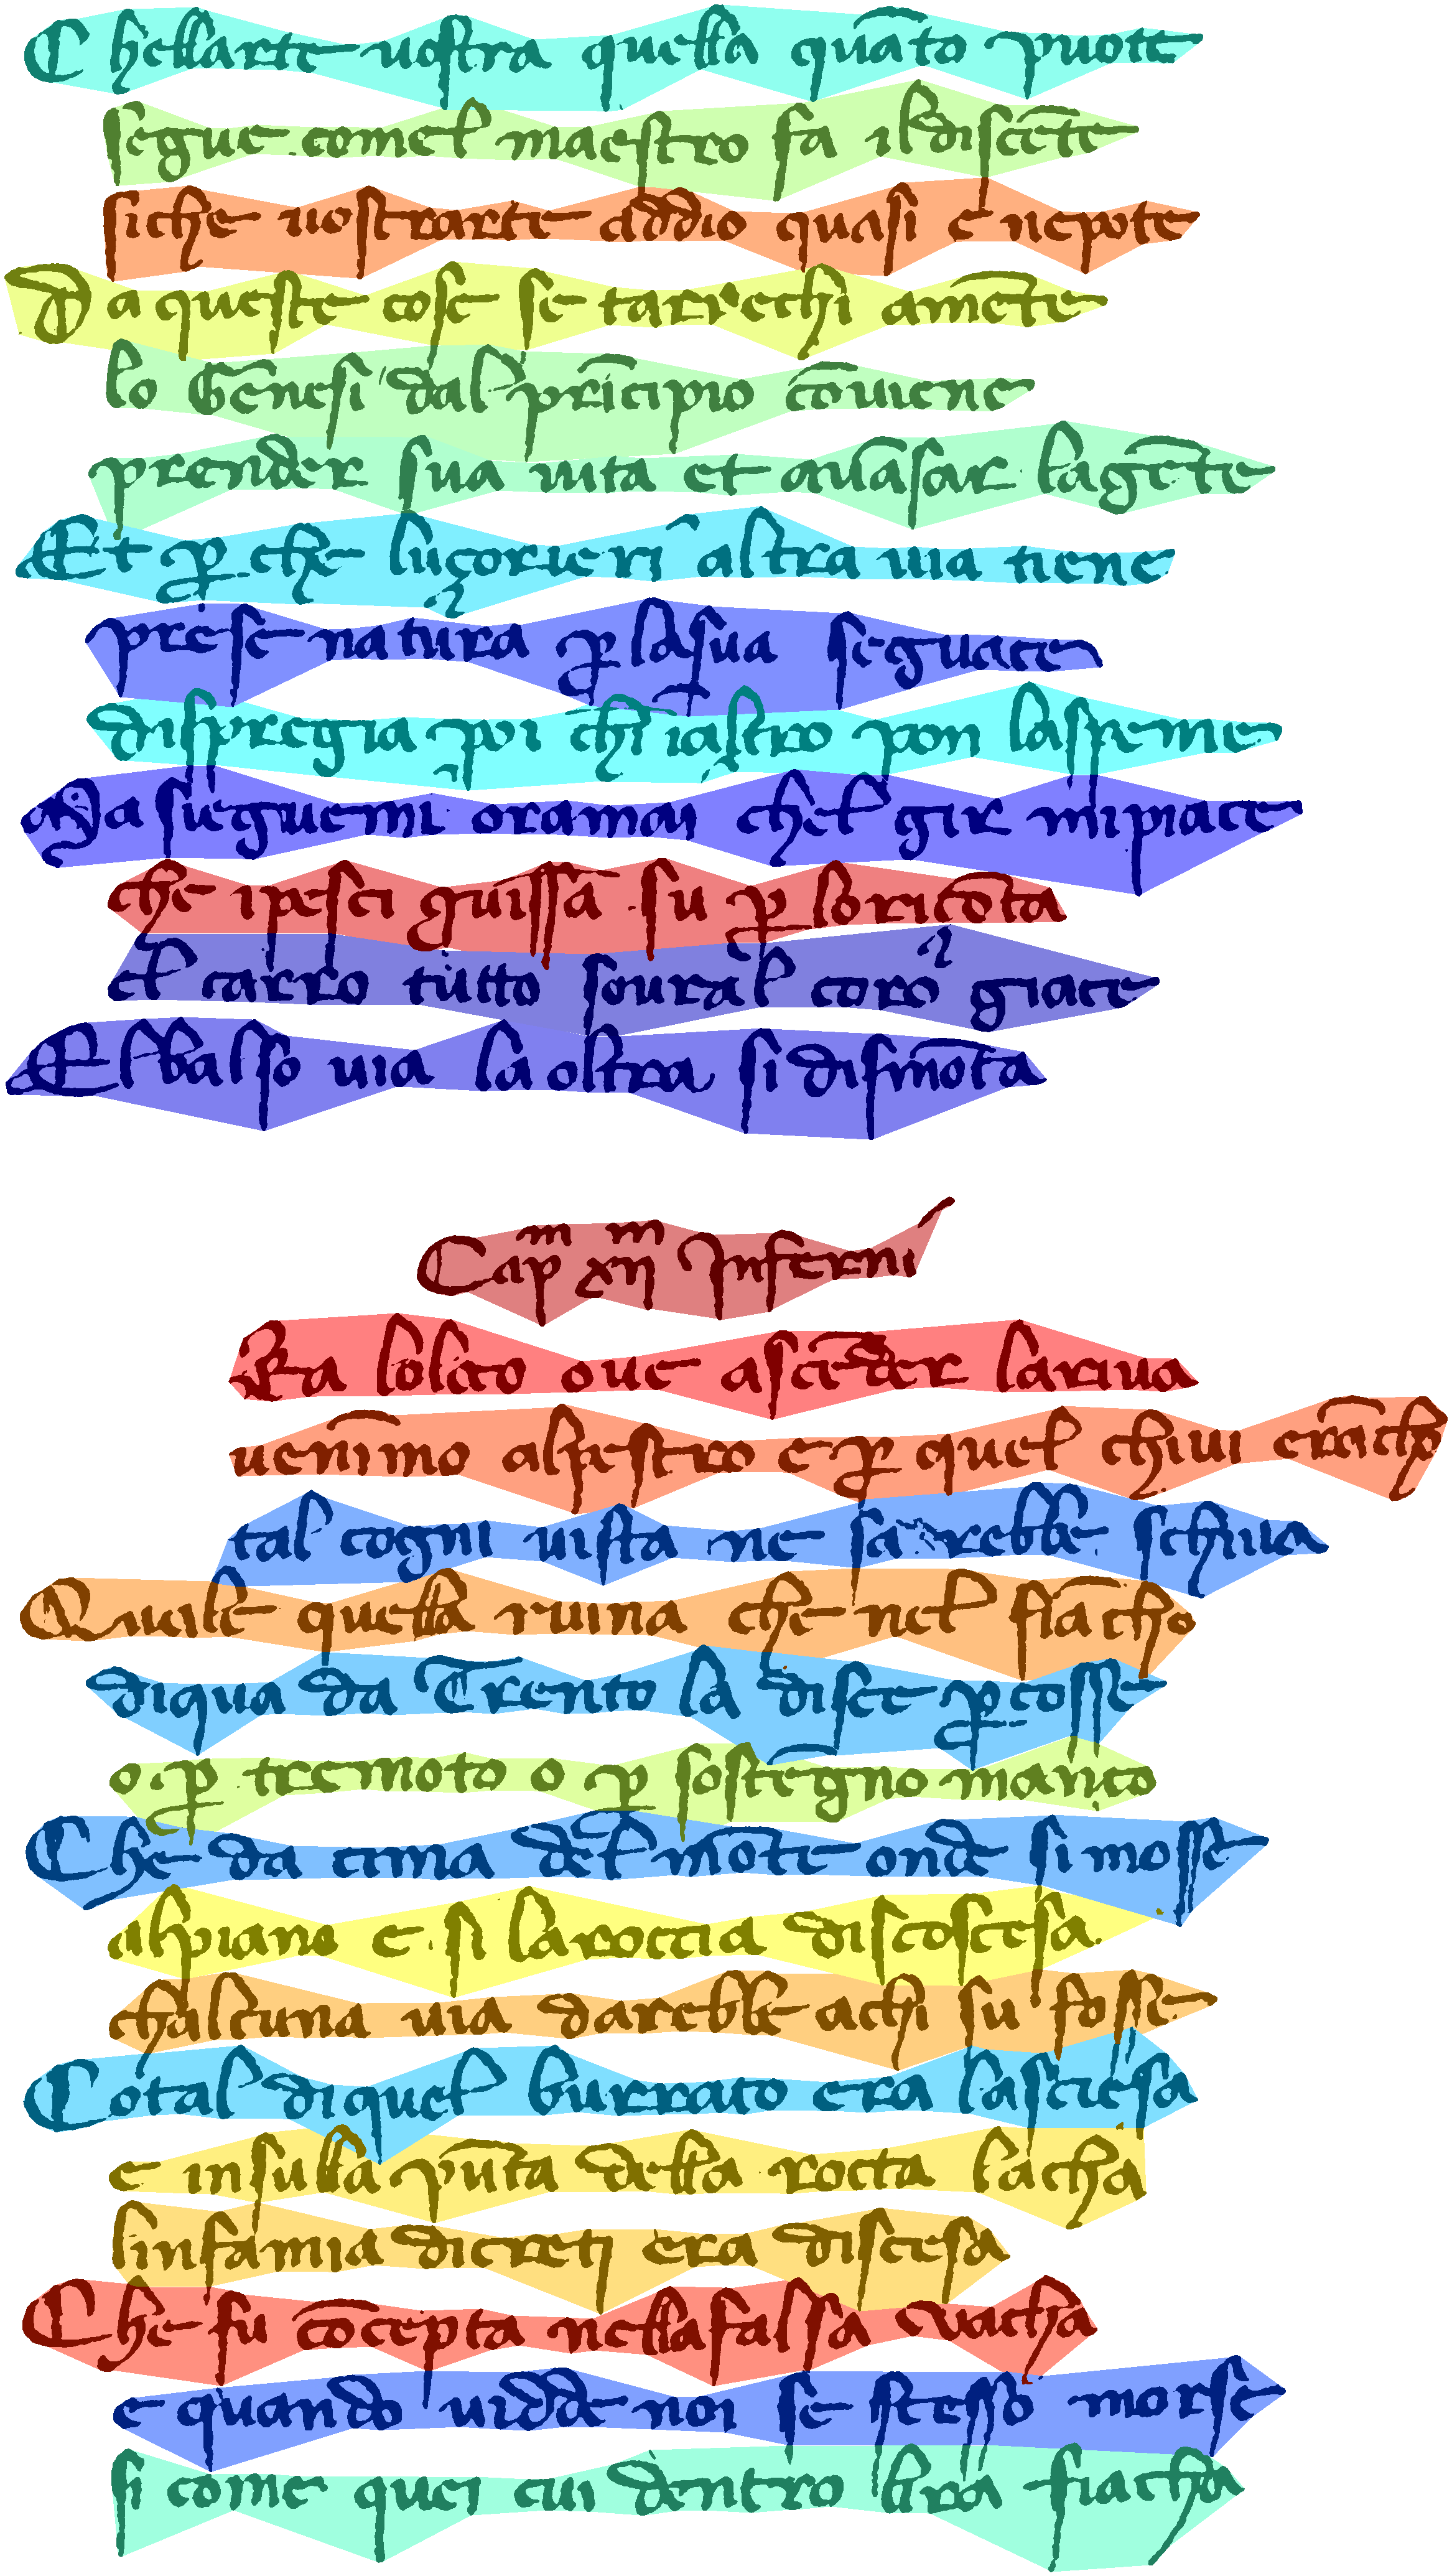 C hellarte uostra quella quāto puote
segue comel maestro fa ildiscēte
siche uostrarte addio quasi e nepote
D a queste cose se tarrechi amēte
lo Gēnesi dal prīcipio cōuiene
prender sua uita et auāsar lagēte
Et ꝑ che luçorieri altra uia tiene
prese natura ꝑ lasua seguace
dispregia poi chī īaltro pon laspeme
Ma sieguemi oramai chel gir mipiace
che ipesci guissā su ꝑ loricōta
el carro tutto soural coro giace
El balso uia la oltra si dismōta
Capm xiim Inferni
Era lolco oue ascēder lariua
uenīmo alpestro e ꝑ quel chiui erācho
tal cogni uista ne sarebbe schiua
Quile quella ruina che nel fiācho
diqua da Trento la disce ꝑcosse
o ꝑ tremoto o ꝑ sostegno manco
Che da cima del mōte onde si mosse
alpiano e si laroccia discoscesa
chalcuna uia darebbe achi su fosse
Cotal diquel burrato era lasciesa
e insulla pūta della rocta lacha
linfamia dicreti era discesa
Che fu cōcepta nellafalsa vacha
e quando uidde noi se stesso morse
si come quei cui dentro lira fiacha